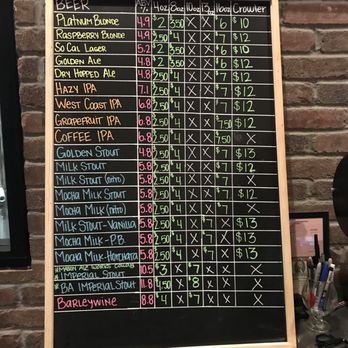 BEER ABV 4oz 8oz 10oz 13oz 16oz Crowler
Platinum Blonde 4.9 $2 3.50 X X $6 $10
Raspberry Blonde 4.9 2.50 $4 X X $7 $12
So Cal Lager 5.2 $2 3.50 X X $6 $10
Golden Ale 4.8 $2 3.50 X X $6
Dry Hopped Ale 4.8 2.50 $4 X X $7 $12
Hazy IPA 7.1 2.50 $4 X X $7 $12
West Coast IPA 6.8 2.50 $4 X X $7 $12
Grapefruit IPA 6.8 2.50 $4 X X 7.50 $12
Coffee IPA 6.8 2.50 $4 X X 7.50 X
Golden Stout 4.8 2.50 $4 X X $7 $13
Milk Stout 5.8 2.50 $4 X X $7 $12
Milk Stout (nitro) 5.8 2.50 $4 X X $7 X
Mocha Milk Stout 5.8 2.50 $4 X X $7 $12
Mocha Milk (nitro) 5.8 2.50 $4 X $7 X X
Milk Stout-Vanilla 5.8 2.50 $4 X $7 X $13
Mocha Milk-PB 5.8 2.50 $4 X $7 X $13
Mocha Milk-Horchata 5.8 2.50 $4 X $7 X $13
Imperial Stout 10.5 $3 X $7 X X X
*BA Imperial Stout 11.8 4.50 X $8 X X X
Barleywine 8.8 $4 X $7 X X X